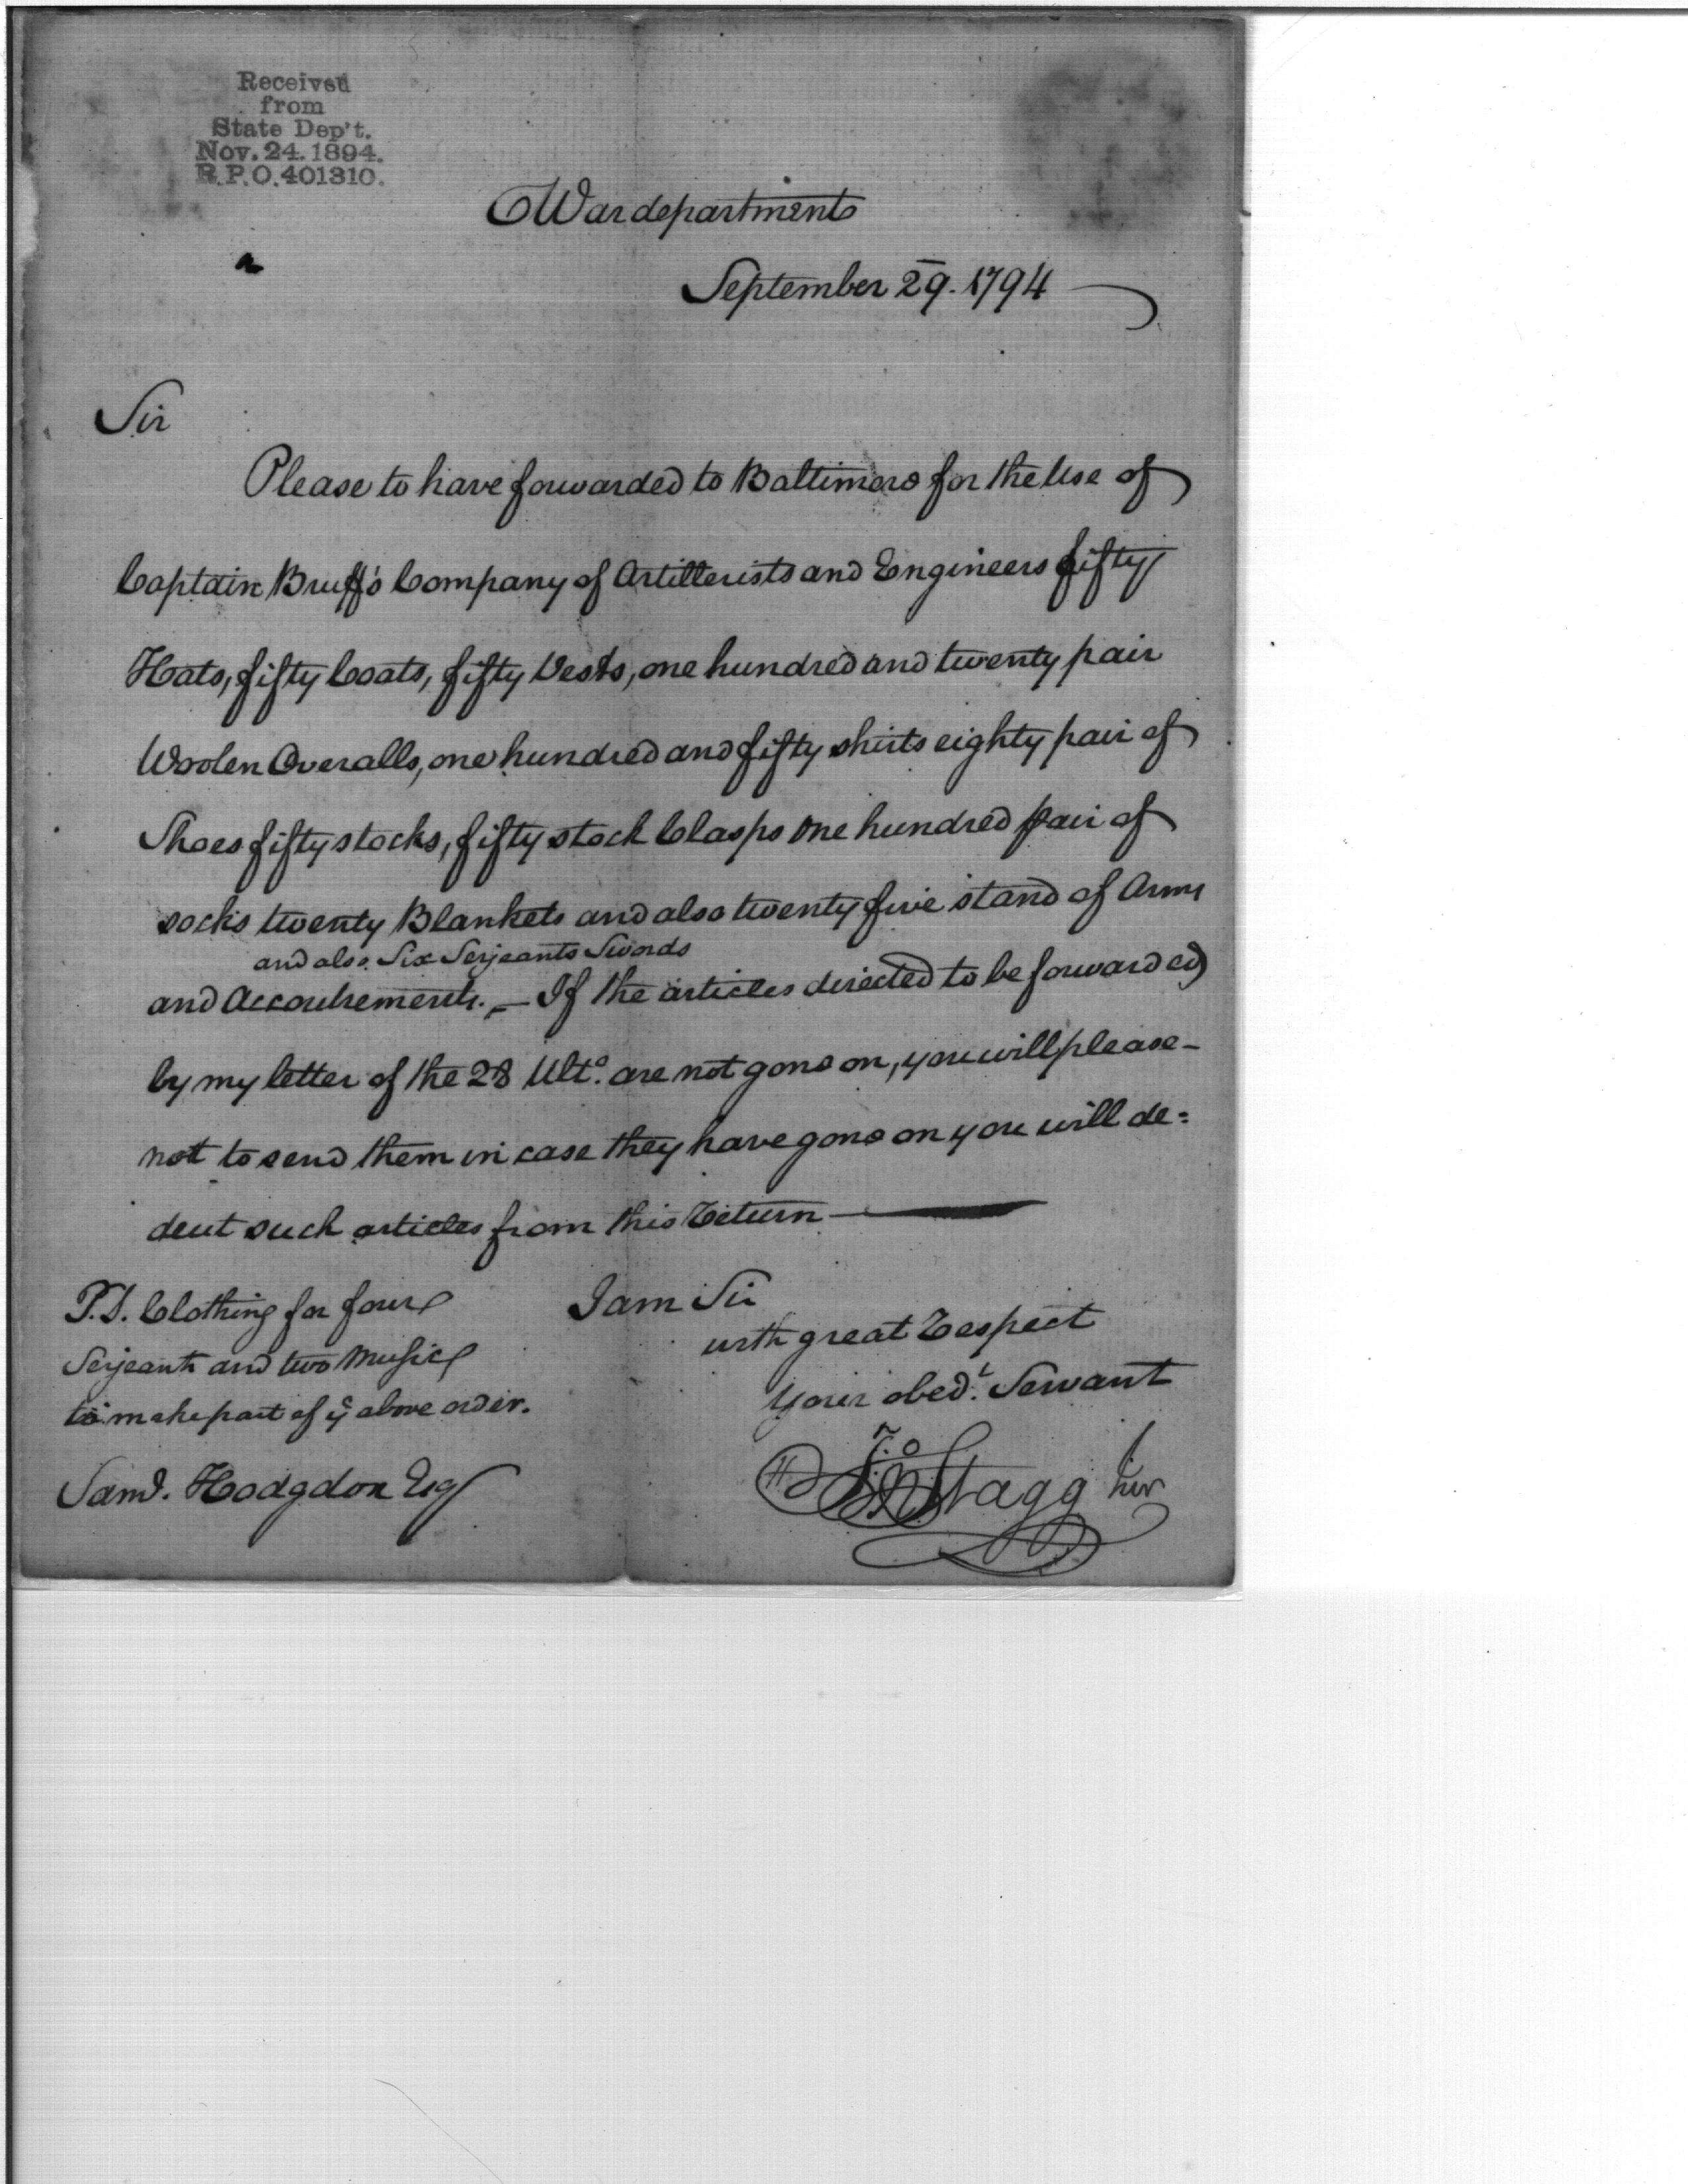 Received
from
State Dep't.
Nov. 24. 1894.
R.P.O. 401310.
War department
September 29. 1794
Sir
Please to have forwarded to Baltimore for the Use of
Captain Bruff's Company of Artillerists and Engineers fifty
Hats, fifty Coats, fifty Vests, one hundred and twenty pair
Woolen Overalls, one hundred and fifty shirts eighty pair of
Shoes fifty stocks, fifty stock Clasps one hundred pair of
socks twenty Blankets and also twenty five stand of Arms
and also Six Serjeants Swords
and Accoutrements. — If the articles directed to be forwarded
by my letter of the 28 Ulto. are not gone on, you will please -
not to send them in case they have gone on you will de=
duct such articles from this Return —
I am Sir
with great Respect
Your obedt. Servant
Jno Stagg Junr
P.S. Clothing for four
Serjeants and two Music
to make part of ye above order.
Saml. Hodgdon Esq